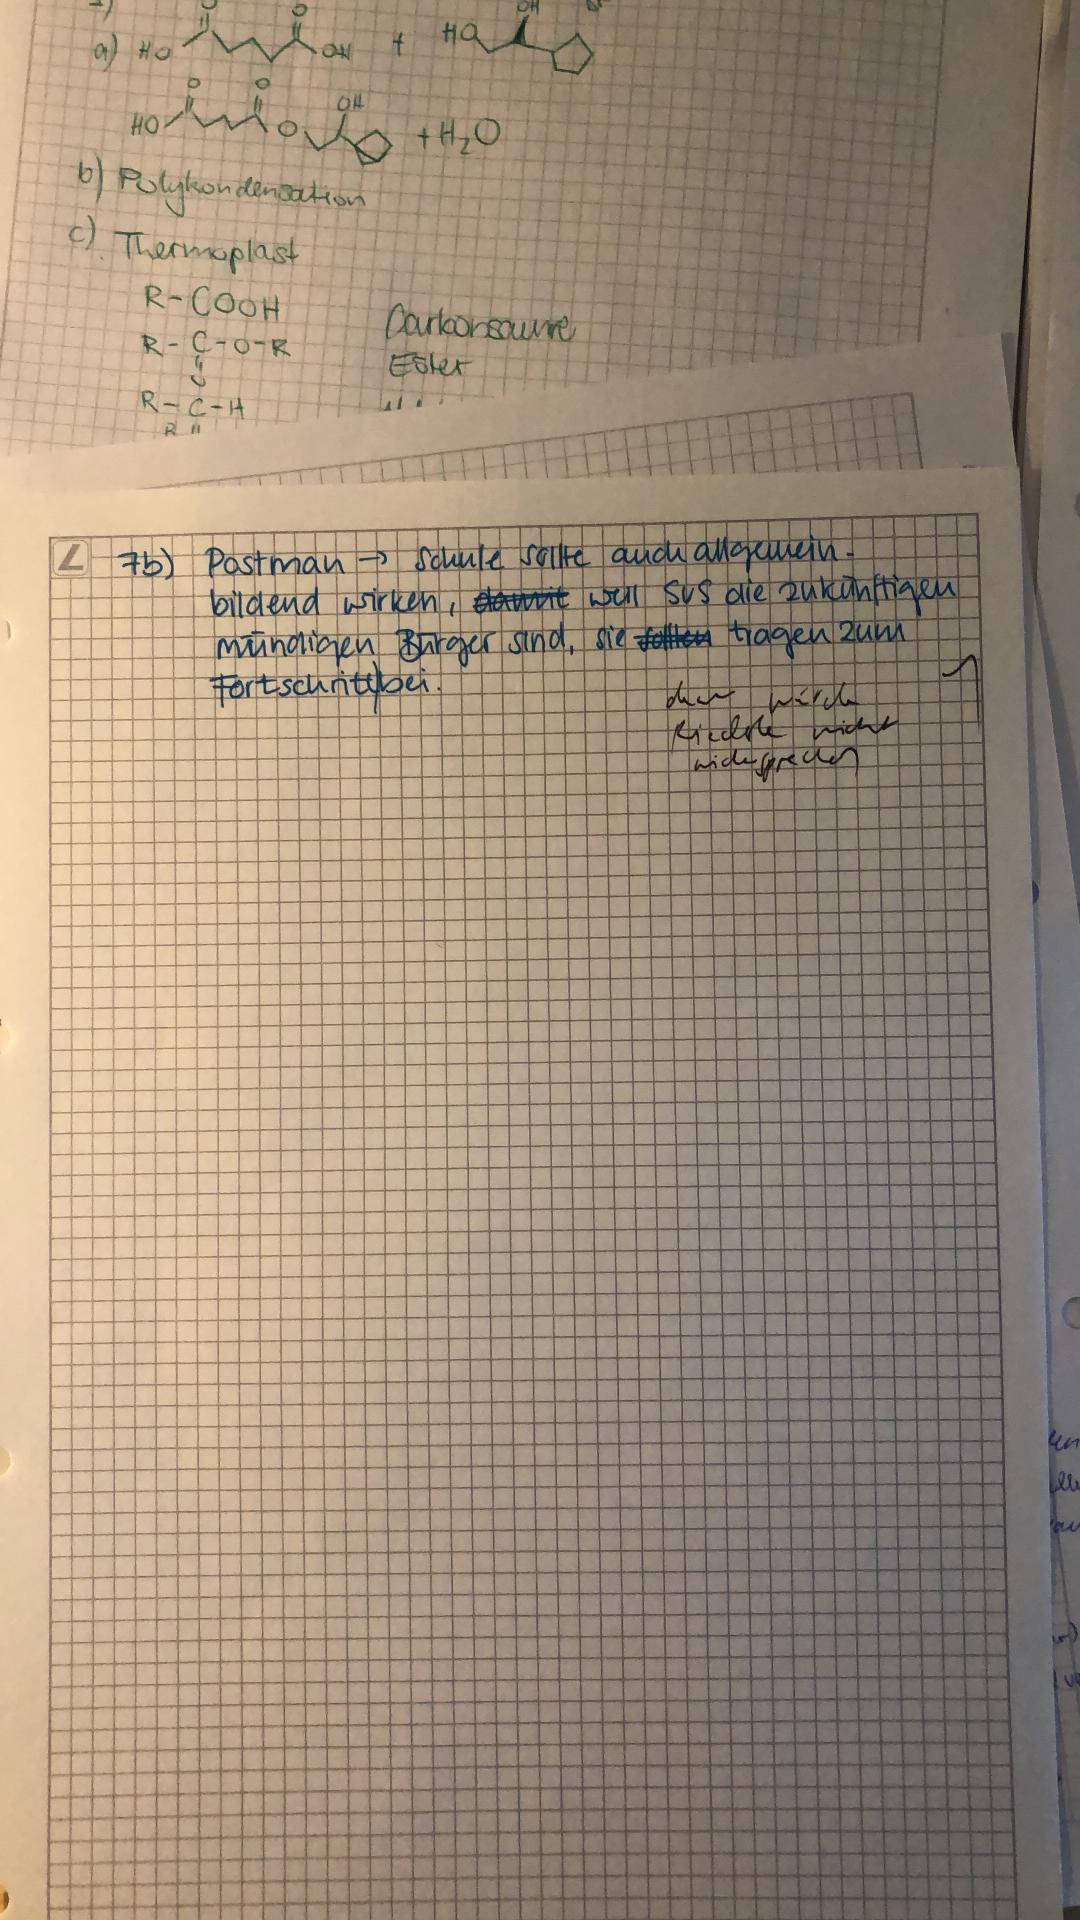 a) HO OH + HO OH
HO O O O OH + H₂O
b) Polykondensation
c) Thermoplast
R-COOH Carbonsäure
R-C-O-R Ester
O
R-C-H
R
7b) Postman → Schule sollte auch allgemein-
bildend wirken, damit weil SuS die zukünftigen
mündigen Bürger sind, sie sollten tragen zum
Fortschritt bei.
dem würde
nicht
widersprechen